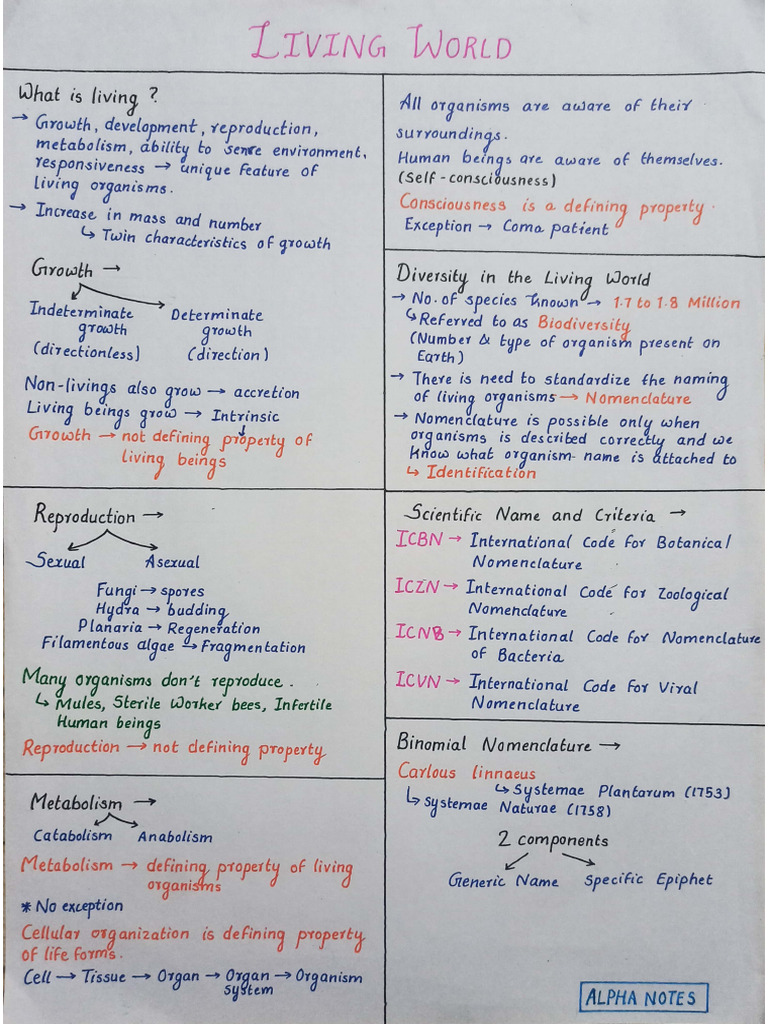 LIVING WORLD
What is living ?
→ Growth, development, reproduction,
metabolism, ability to sense environment,
responsiveness → unique feature of
living organisms.
→ Increase in mass and number
↳ Twin characteristics of growth
Growth →
Indeterminate growth (directionless)
Determinate growth (direction)
Non-livings also grow → accretion
Living beings grow → Intrinsic
Growth → not defining property of
living beings
Reproduction →
Sexual Asexual
Fungi → spores
Hydra → budding
Planaria → Regeneration
Filamentous algae → Fragmentation
Many organisms don't reproduce.
↳ Mules, Sterile Worker bees, Infertile
Human beings
Reproduction → not defining property
Metabolism →
Catabolism Anabolism
Metabolism → defining property of living
organisms
* No exception
Cellular organization is defining property
of life forms.
Cell → Tissue → Organ → Organ → Organism
system
All organisms are aware of their
surroundings.
Human beings are aware of themselves.
(Self-consciousness)
Consciousness is a defining property.
Exception → Coma patient
Diversity in the Living World
→ No. of species known → 1.7 to 1.8 Million
↳ Referred to as Biodiversity
(Number & type of organism present on
Earth)
→ There is need to standardize the naming
of living organisms → Nomenclature
→ Nomenclature is possible only when
organisms is described correctly and we
know what organism name is attached to
↳ Identification
Scientific Name and Criteria →
ICBN → International Code for Botanical
Nomenclature
ICZN → International Code for Zoological
Nomenclature
ICNB → International Code for Nomenclature
of Bacteria
ICVN → International Code for Viral
Nomenclature
Binomial Nomenclature →
Carlous linnaeus
↳ Systemae Plantarum (1753)
↳ Systemae Naturae (1758)
2 components
Generic Name Specific Epiphet
ALPHA NOTES